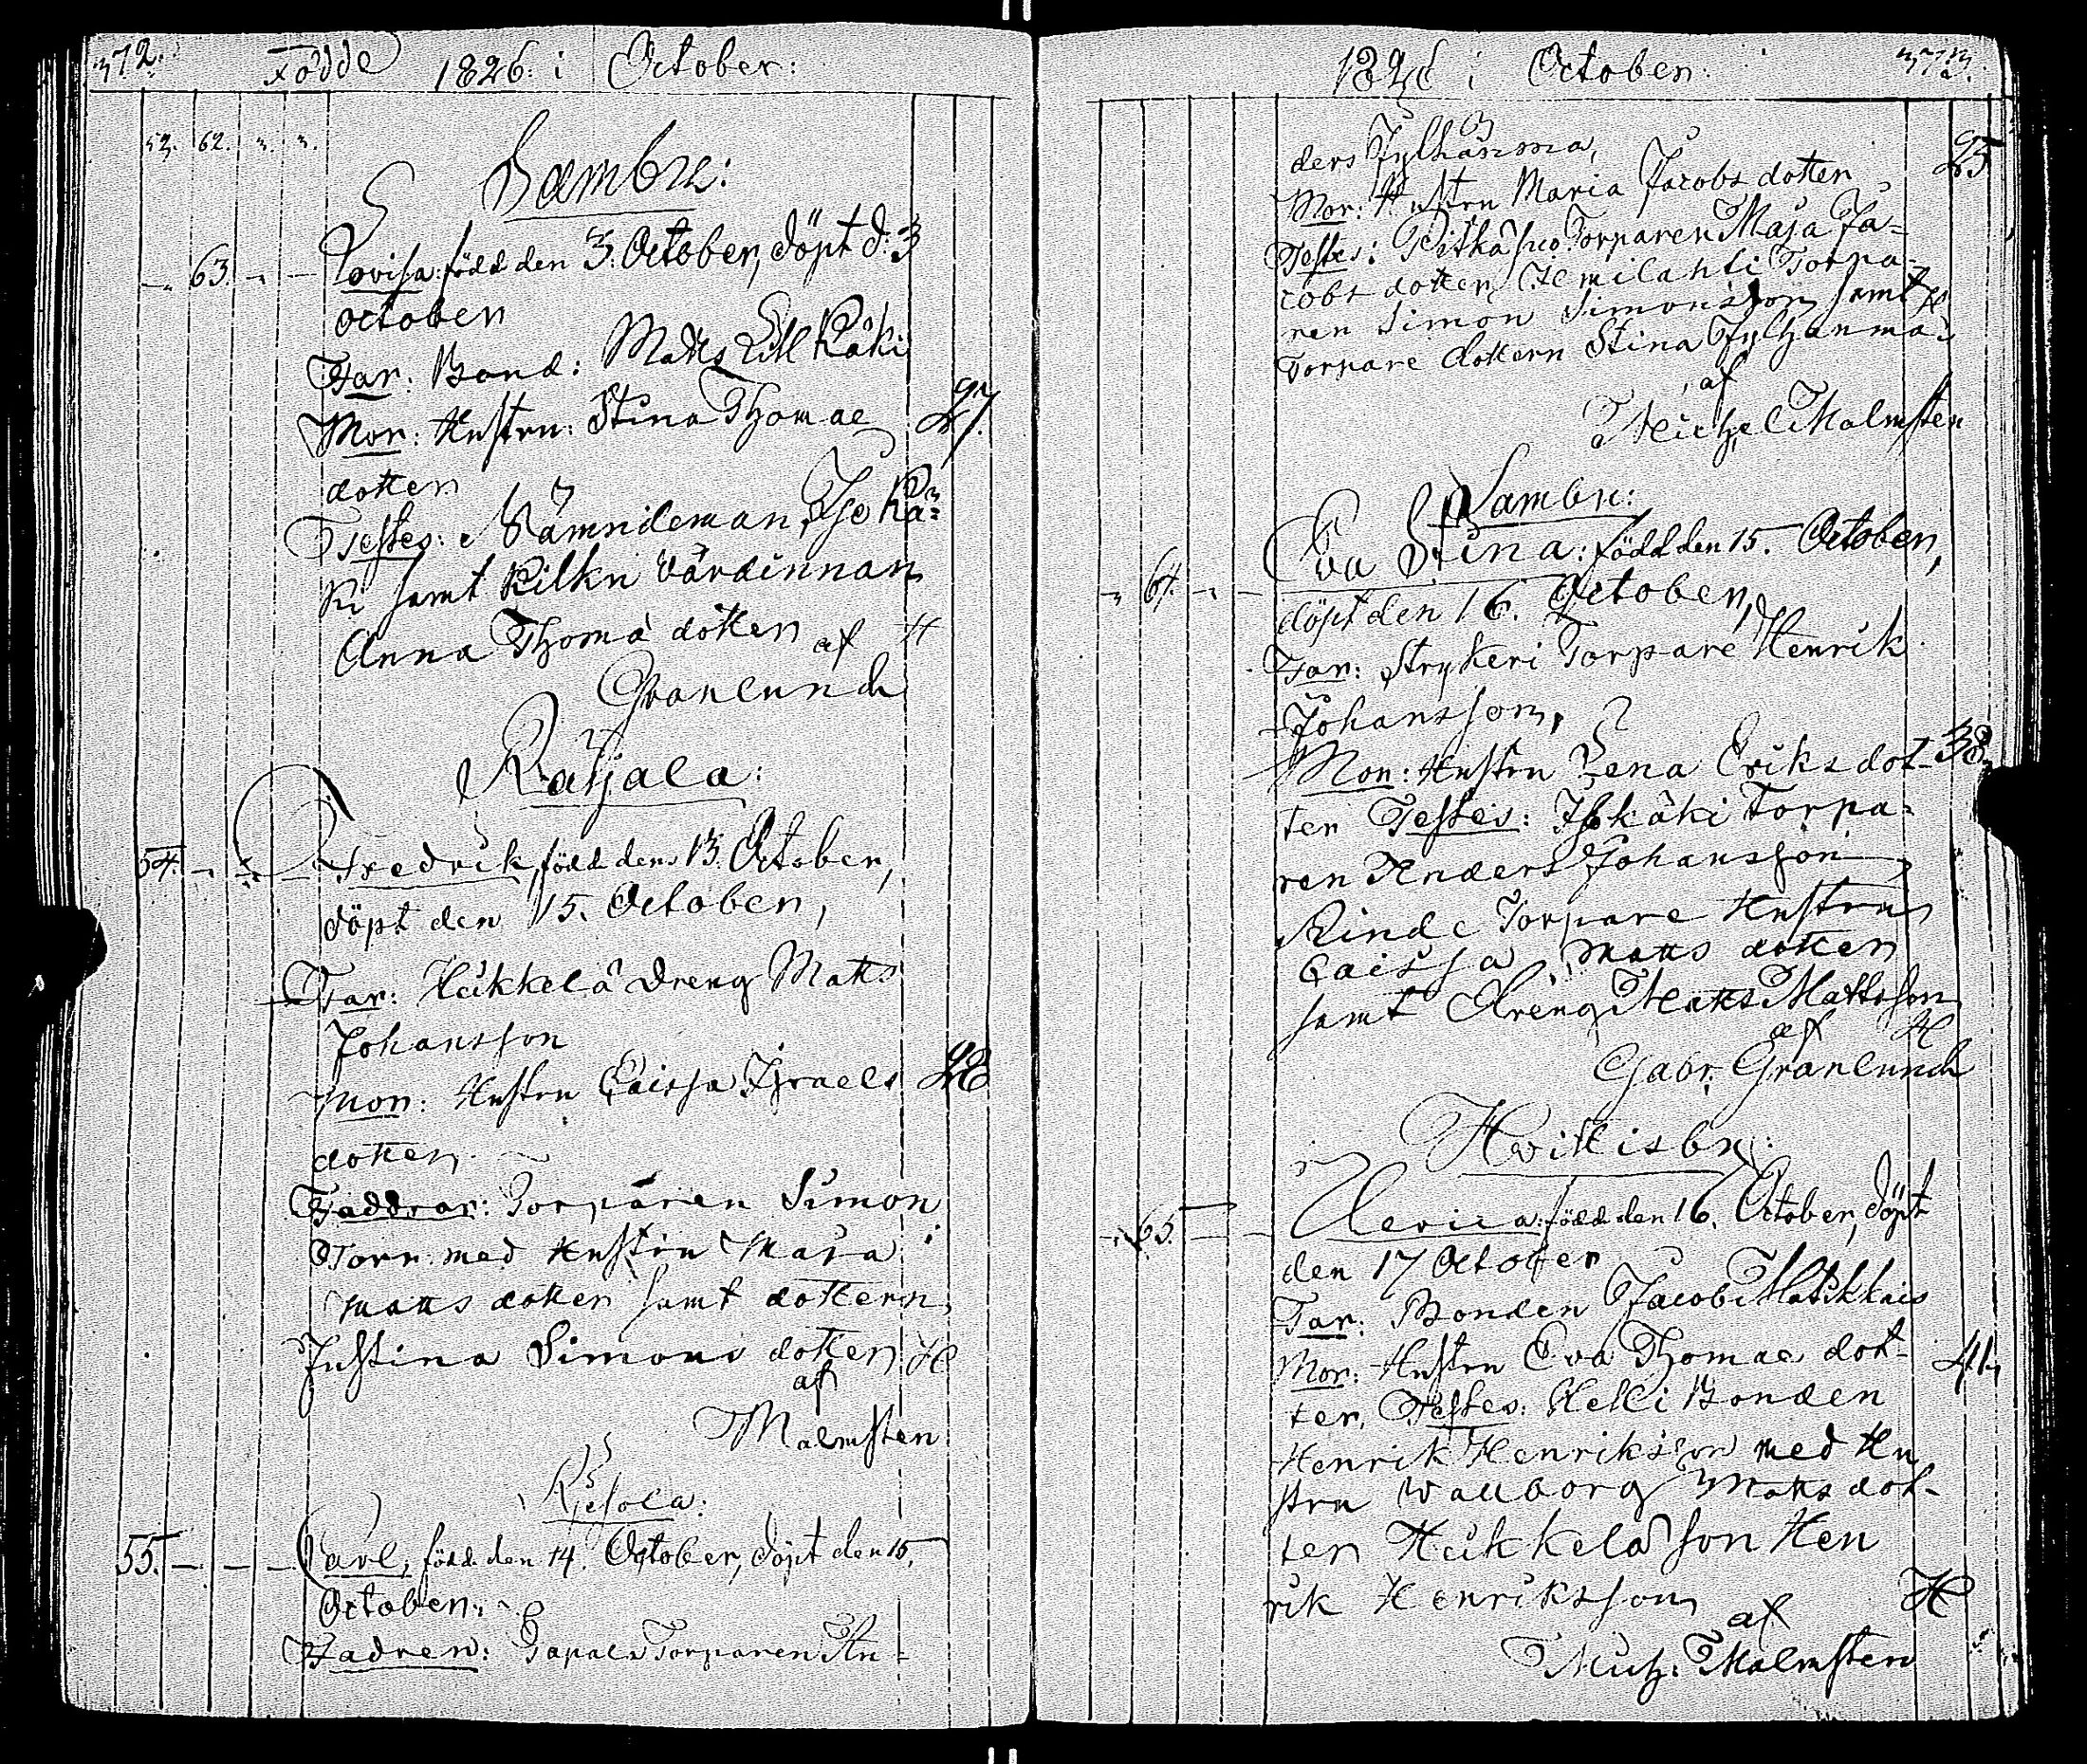 372. Födde 1826. i October:
53. 62. n. n.
Sambu:
63. Lovisa: född den 3. October, döpt d: 3
October
Far: Bond: Matts Lill Käki
Mor: Hustru: Stina Thomae 27.
dotter
Testes: Nämndeman Iso Kä=
ki samt Kilku värdinnan
Anna Thomä dotter af H
Granlund
Ratjala:
54. Fredrik, född den 13. October,
döpt den 15. October,
Far: Hukkela Dreng Matts
Johansson
Mor: Hustru Caissa Israels 28
dotter
Faddrar: Torparen Simon
Torn: med Hustru Maja
Matts dotter samt dottern
Justina Simons dotter H
af
Malmsten
55. Carl, född den 14. October, döpt den 15.
October.
Fadren: Papals Torparen An=
1826 i October. 373.
ders Jylhänmä, 25
Mor: Hustru Maria Jacobs dotter
Testes: Torparen Maja Ja=
cobs dotter, Hemilahti Torpa=
ren Simon Simonsson samt H
Torpare dottern Stina Jylhänmä
af
Michel Malmsten
Sambu:
64. Eva Stina: född den 15. October,
döpt den 16. October,
Far: Strykeri Torpare Henrik
Johansson,
Mor: Hustru Lena Eriks dot= 38.
ter Testes: Iso Käki Torpa=
ren Anders Johansson
Rinde Torpare Hustrun
Caissa Matts dotter
samt Dreng Matts Mattsson
af H
Gabr. Granlund
Hvittisby:
65. Ulrica: född den 16. October, döpt
den 17 October
Far: Bonden Jacob
Mor: Hustru Eva Thomae dot= 41,
ter, Testes: Bonden
Henrik Henriksson med Hu
stru Wallborg Matts dot=
ter Hukkela son Hen
rik Henriksson H
af
Mich: Malmsten